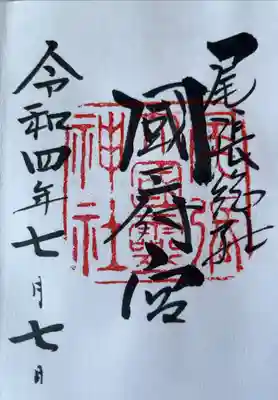 尾張総社
國府宮
令和四年七月七日
神社